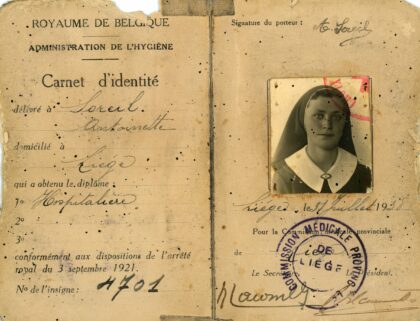 ROYAUME DE BELGIQUE
ADMINISTRATION DE L'HYGIÈNE
Carnet d'identité
délivré à Soreil
Antoinette
domicilié à
Liège
qui a obtenu le diplôme :
1° Hospitalière
2°
3°
conformément aux dispositions de l'arrêté
royal du 3 septembre 1921.
N° de l'insigne : 4701
Signature du porteur : A. Soreil
Liège, le juillet
Pour la Commission médicale provinciale
de
Le Président,
COMMISSION MÉDICALE PROVINC
DE
LIEGE